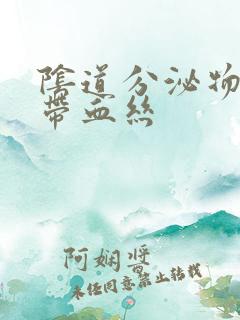 陰道分泌物
帶血絲
阿嫻醬
未经同意禁止转载